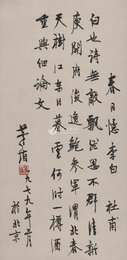 春日憶李白 杜甫
白也詩無敵飄然思不群清新
庾開府俊逸鮑參軍渭北春
天樹江東日暮雲何時一樽酒
重與細論文
茅盾 一九七九年 月
於北京